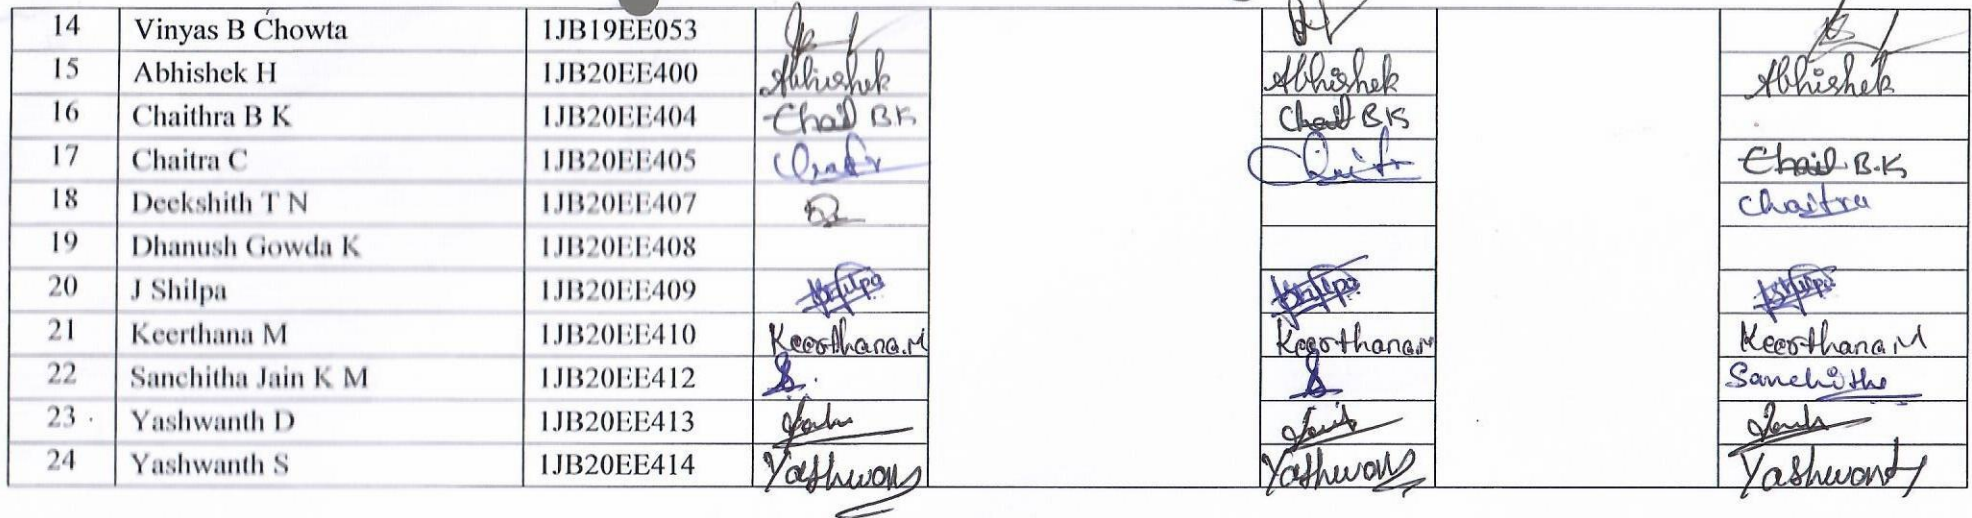 14 Vinyas B Chowta 1JB19EE053
15 Abhishek H 1JB20EE400 Abhishek Abhishek Abhishek
16 Chaithra B K 1JB20EE404 BK BK
17 Chaitra C 1JB20EE405 B.K
18 Deekshith T N 1JB20EE407 Chaitra
19 Dhanush Gowda K 1JB20EE408
20 J Shilpa 1JB20EE409 JShilpa JShilpa JShilpa
21 Keerthana M 1JB20EE410 Keerthana.M Keerthana.M Keerthana.M
22 Sanchitha Jain K M 1JB20EE412 S. S Sanchitha
23 Yashwanth D 1JB20EE413
24 Yashwanth S 1JB20EE414